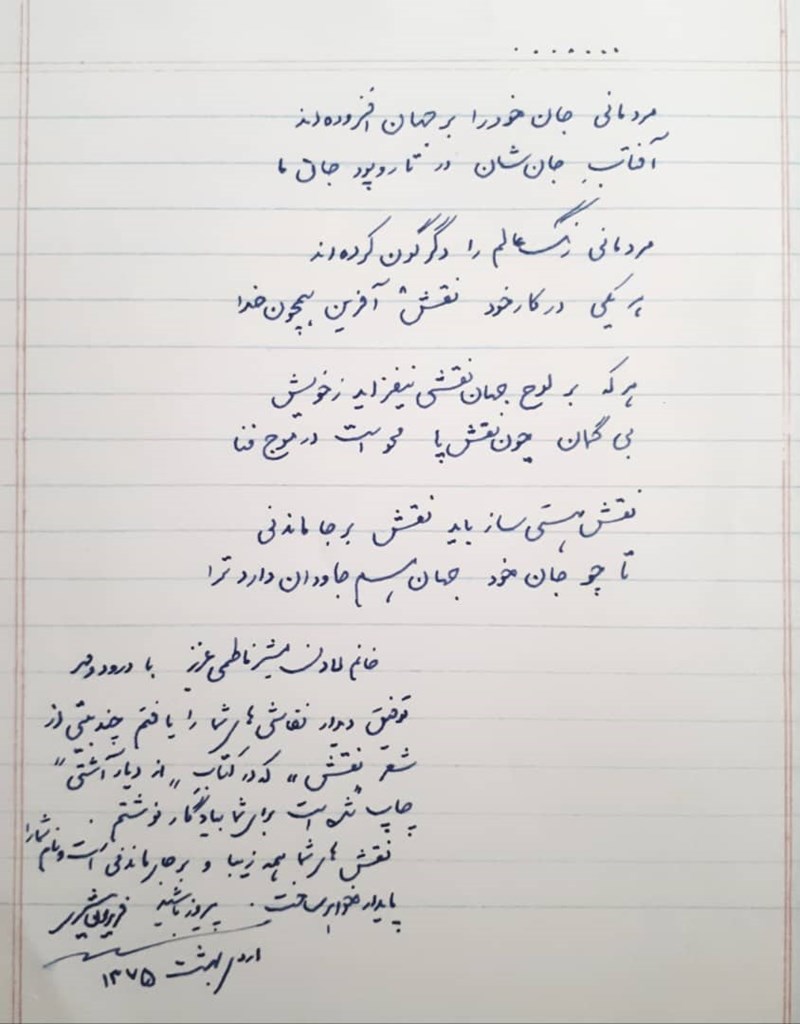 .......
مردمانی جان خود را بر جهان افزوده‌اند
آفتابِ جان‌شان در تار و پود جان ما
مردمانی رنگ عالم را دگرگون کرده‌اند
هر یکی در کار خود نقش آفرین همچون خدا
هر که بر لوح جهان نقشی نیفزاید ز خویش
بی گمان چون نقش پا محو است در موج فنا
نقش هستی ساز باید نقش بر جا ماندنی
تا چو جان خود جهان هم جاودان دارد ترا
خانم لادن مشیر فاطمی عزیز با درود و مهر
توفیق دیدار نقاشی‌های شما را یافتم چند بیتی از
شعر "نقش" که در کتاب "از دیار آشتی"
چاپ شده است برای شما بیادگار نوشتم .
نقش های شما همه زیبا و بر جای ماندنی است و نام شما را
پایدار خواهد ساخت . پیروز باشید فریدون مشیری
اردیبهشت ۱۳۷۵